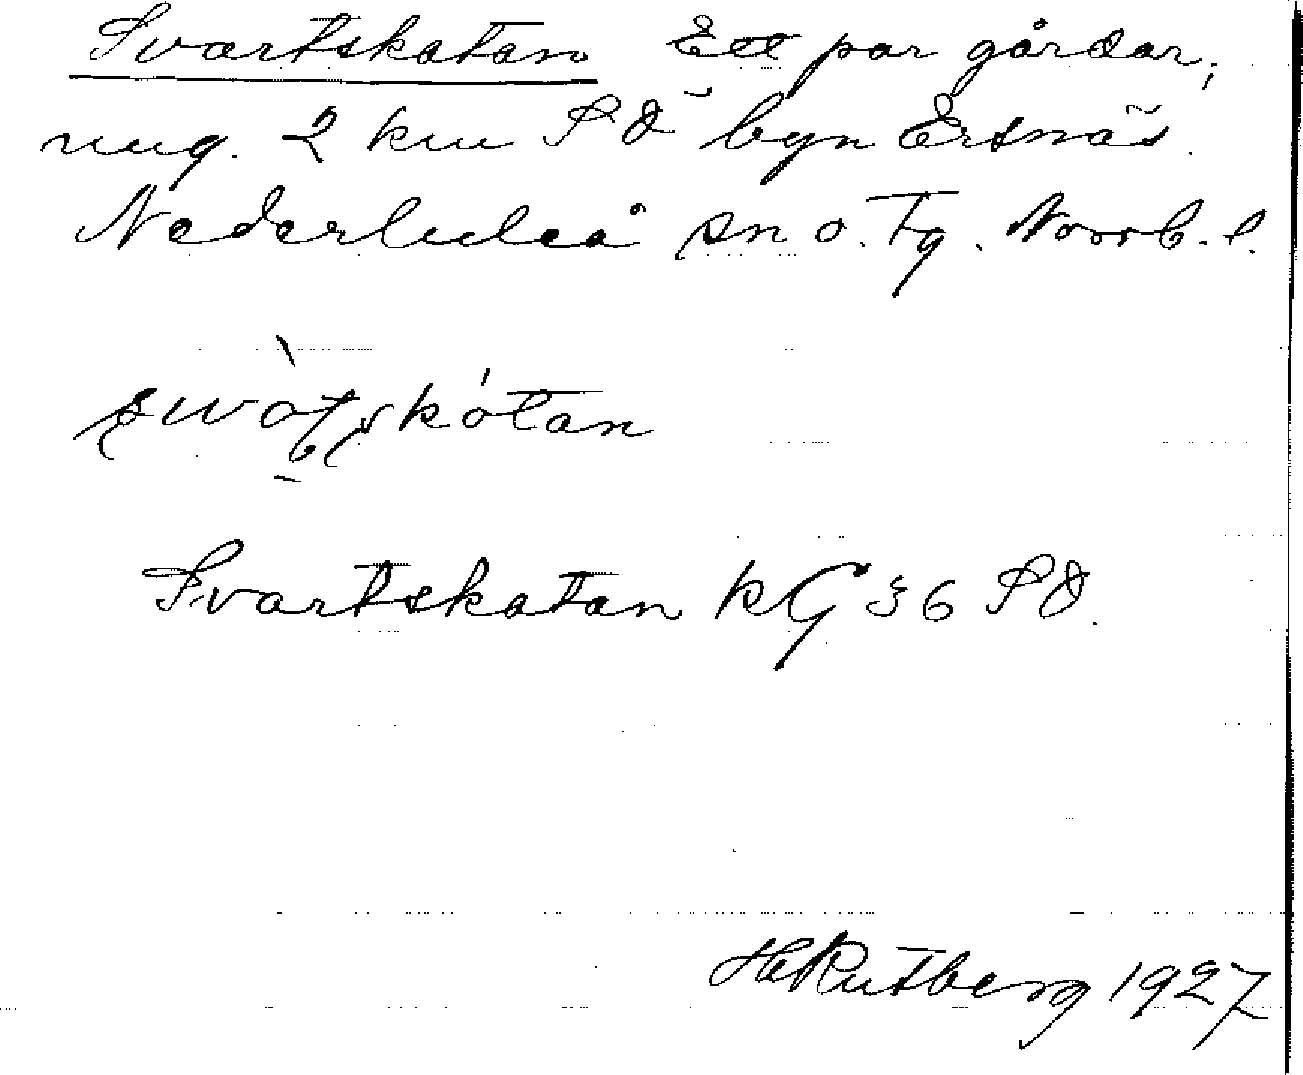 Svartskatan Ett par gårdar,
ung. 2 km SO byn Ersnäs.
Nederluleå sn o. Tg. Norrb. l.
Svartskatan KG 36 SO.
HRutberg 1927